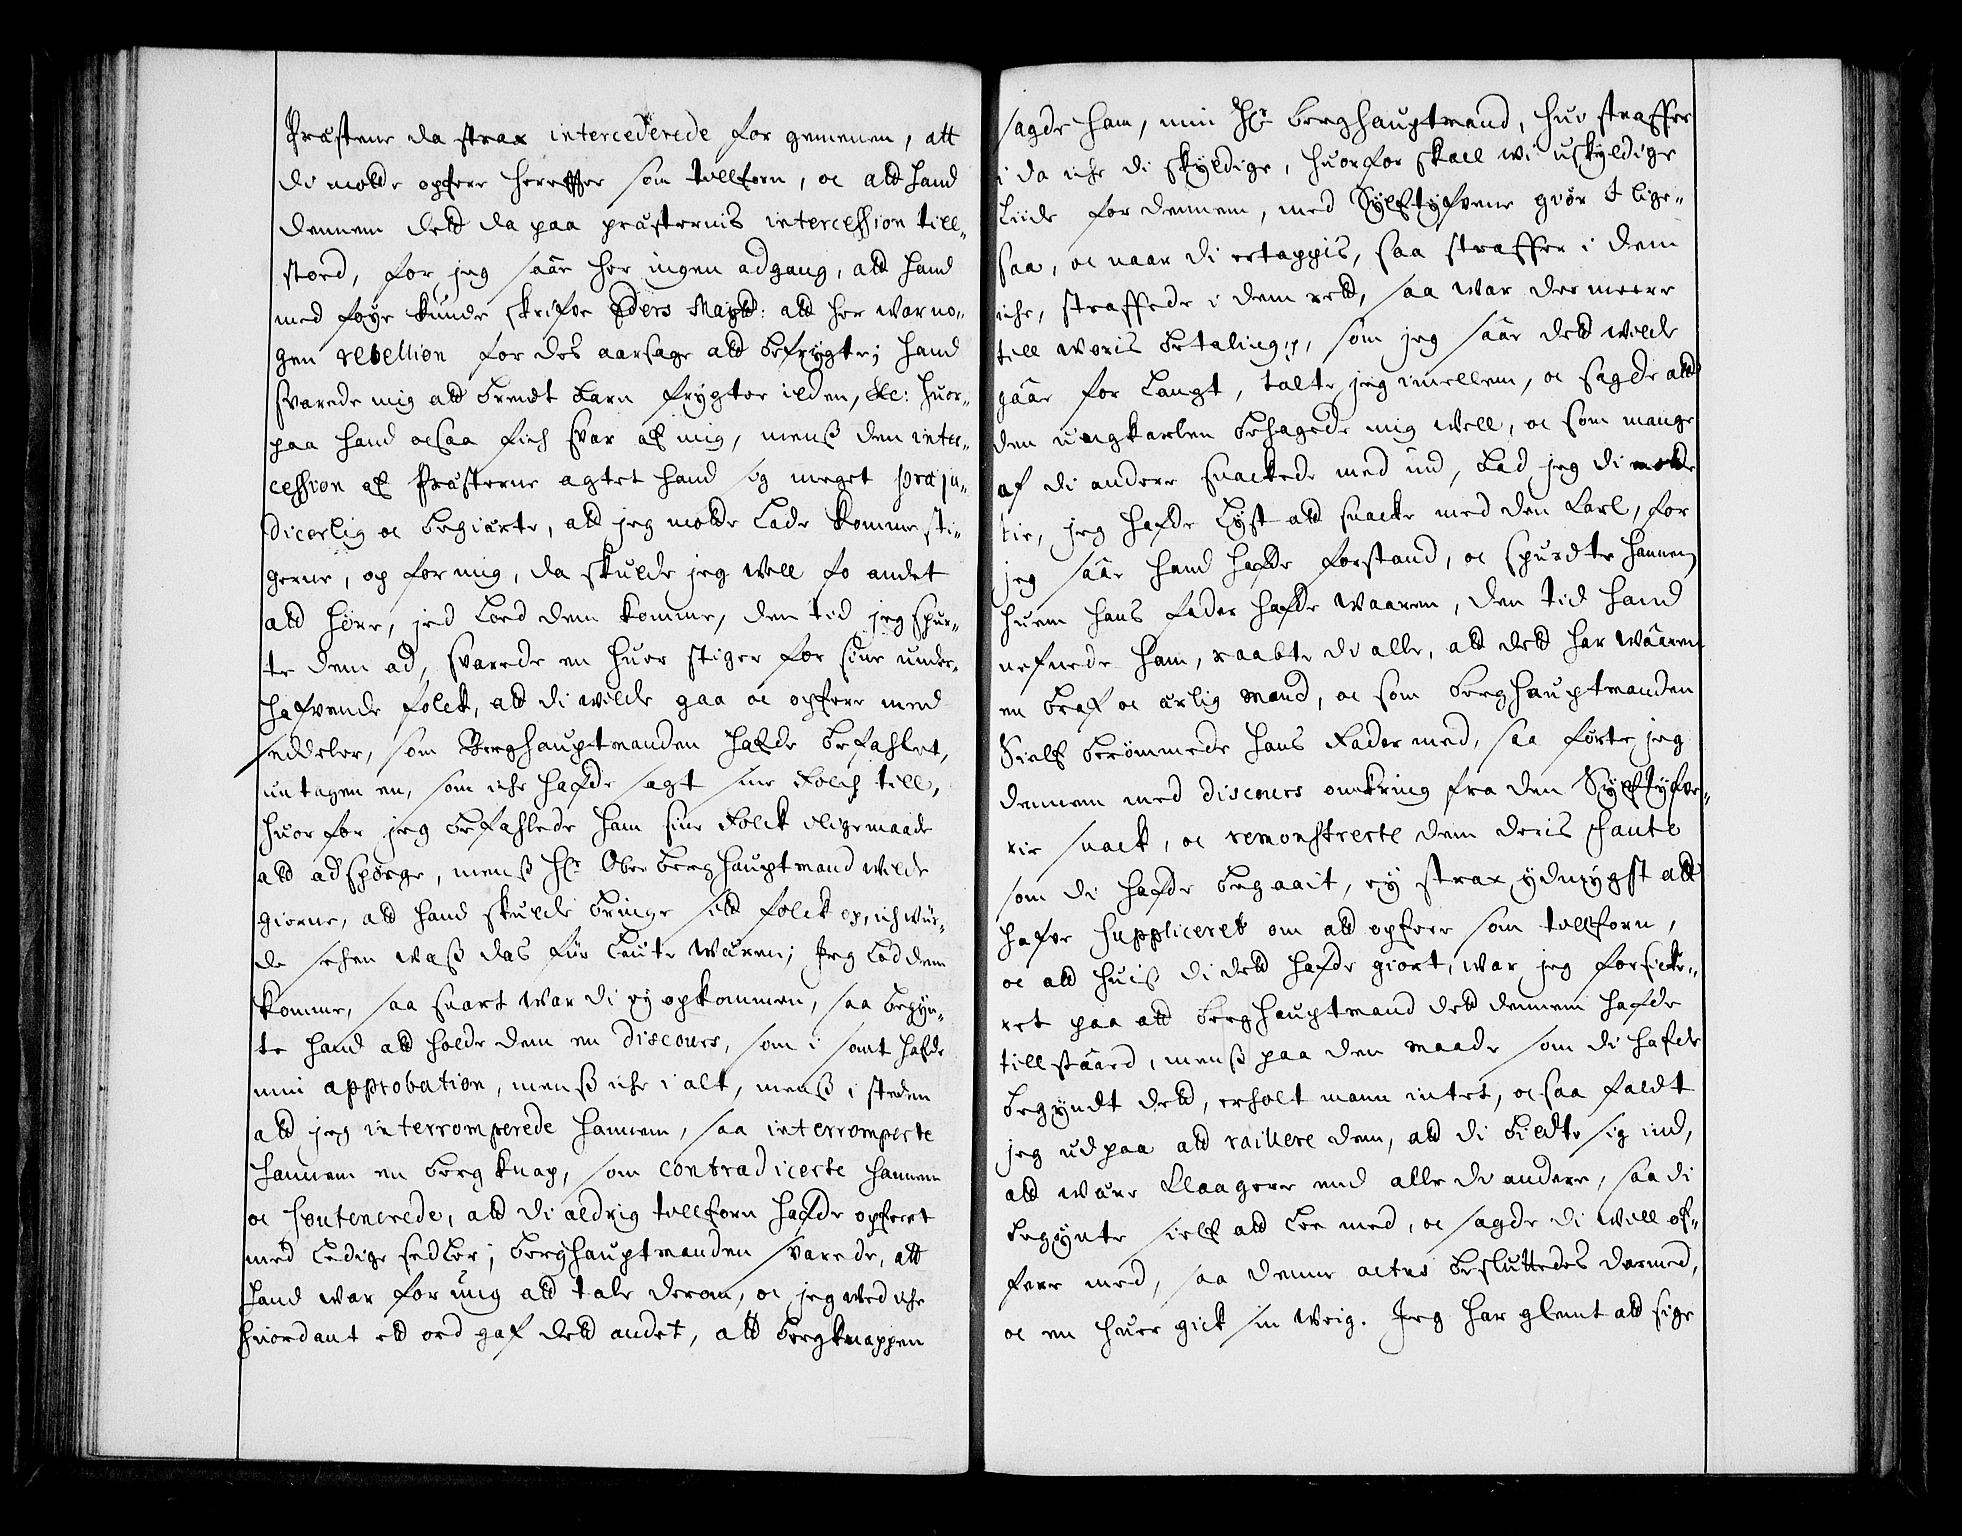 Præstene da strax intercederede for gemenen, att
di motte opfere hereffter som tillforn, oc att hand
dennem dett da paa præsternis intercession till-
stoed, for jeg saae her ingen adgang, att hand
med føye kunde skrifve Eders Mayst: att her war no-
gen rebellion for des aarsage att befrygte; hand
svarede mig att brendt barn frygter ilden, &c: huor-
paa hand ocsaa fich svar af mig, menß den inter-
cession af Præsterne agtet hand sig meget præju-
dicerlig oc begiærte, att jeg motte lade komme sti-
gerne, op for mig, da skulde jeg well fo andet
att høre, jed loed dem komme, den tid jeg spur-
te dem ad, svarede en huer stiger for sine under-
hafvende folck, att di wilde gaa oc opfere med
seddeler, som Berghauptmanden hafde befahlet,
untagen en, som iche hafde sagt sine Folch till,
huor for jeg befahlede ham sine Folck iligemaade
att adspørge, menß Hr Ober berghauptmand wilde
gierne, att hand skulde bringe sitt folck op, ich wür-
de sehen waß das für leute wären; Jeg lod dem
komme, saa snart war di ey opkommen, saa begyn-
te hand att holde dem en discours, som i somt hafde
min approbation, menß iche i alt, menß i steden
att jeg interromperede hannem, saa interromperte
hannem en bergknap, som contradicerte hannem
oc soutenerede, att di aldrig tillforn hafde opferet
med ledige sedler; berghauptmanden svarede, att
hand war for ung att tale derom, oc jeg wed iche
huordant ett ord gaf dett andet, att bergknappen
sagde ham, min Hr berghauptmand, hui straffer
i da iche di skyldige, huorfor skall wi uskyldige
liide for dennem, med Sylftyfvene giør I lige-
saa, oc naar di ertappis, saa straffer i dem
iche, straffede i dem rett, saa war der meere
till woris betaling, som jeg saae dett wilde
gaae for langt, talte jeg imellem, oc sagde att
den ungkarlen behagede mig well, oc som mange
af di andere snackede med ind, bad jeg di motte
tie, jeg hafde Lyst att snacke med den karl, for
jeg saae hand hafde forstand, oc spurdte hannem
huem hans fader hafde waaren, den tid hand
nefnede ham, raabte di alle, att dett har waaren
en braf oc ærlig mand, oc som berghauptmanden
Sielf berømmede hans Fader med, saa førte jeg
dennem med discours omkring fra den Sylftyfve-
rie snack, oc remonstrerte dem deris faute
som di hafde begaait, ey strax ydmygst att
hafve suppliceret om att opfere som tillforn,
oc att huis di dett hafde giort, war jeg forsicke-
ret paa att berghauptmand dett dennem hafde
tillstaaed, menß paa den maade som di hafde
begyndt dett, erholt mann intet, oc saa faldt
jeg ud paa att raillere dem, att di bildte sig ind,
att wære klaagere end alle di andere, saa di
begynte sielf att lee med, oc sagde di will op-
fere med, saa denne actus besluttedes dermed,
oc en huer gick sin weig. Jeg har glemt att sige